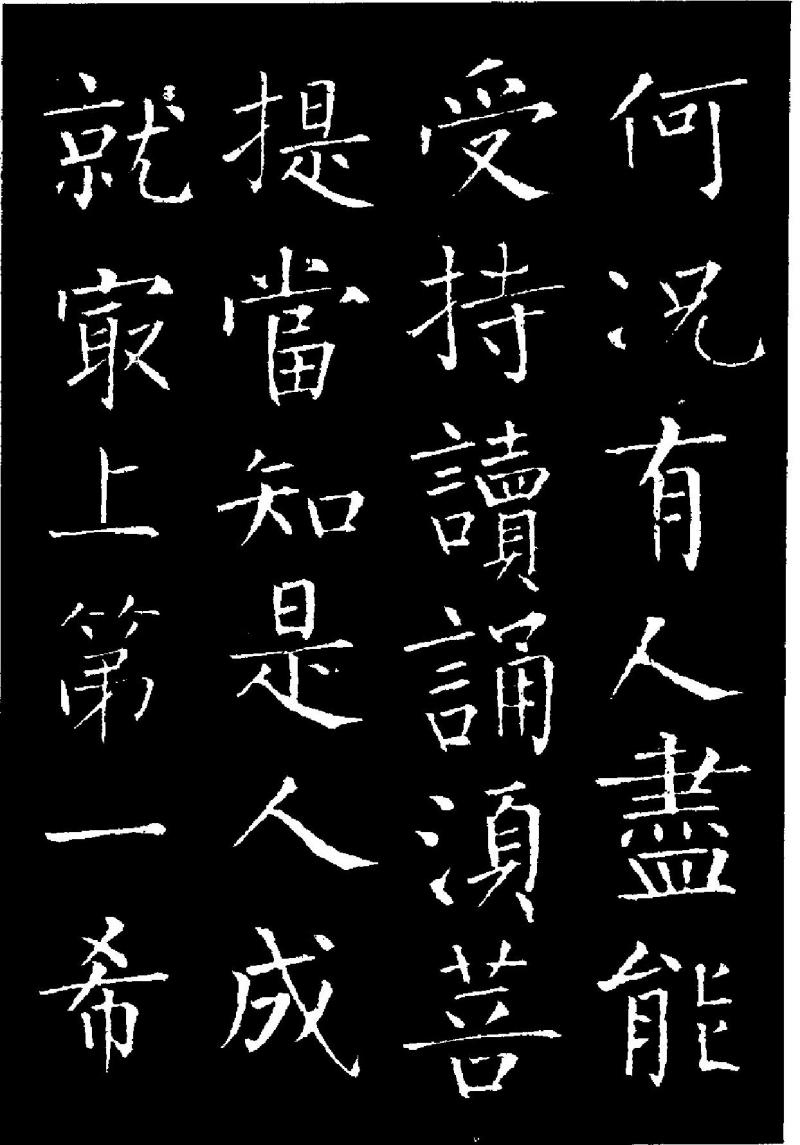 何況有人盡能
受持讀誦湏菩
提當知是人成
就冣上第一希